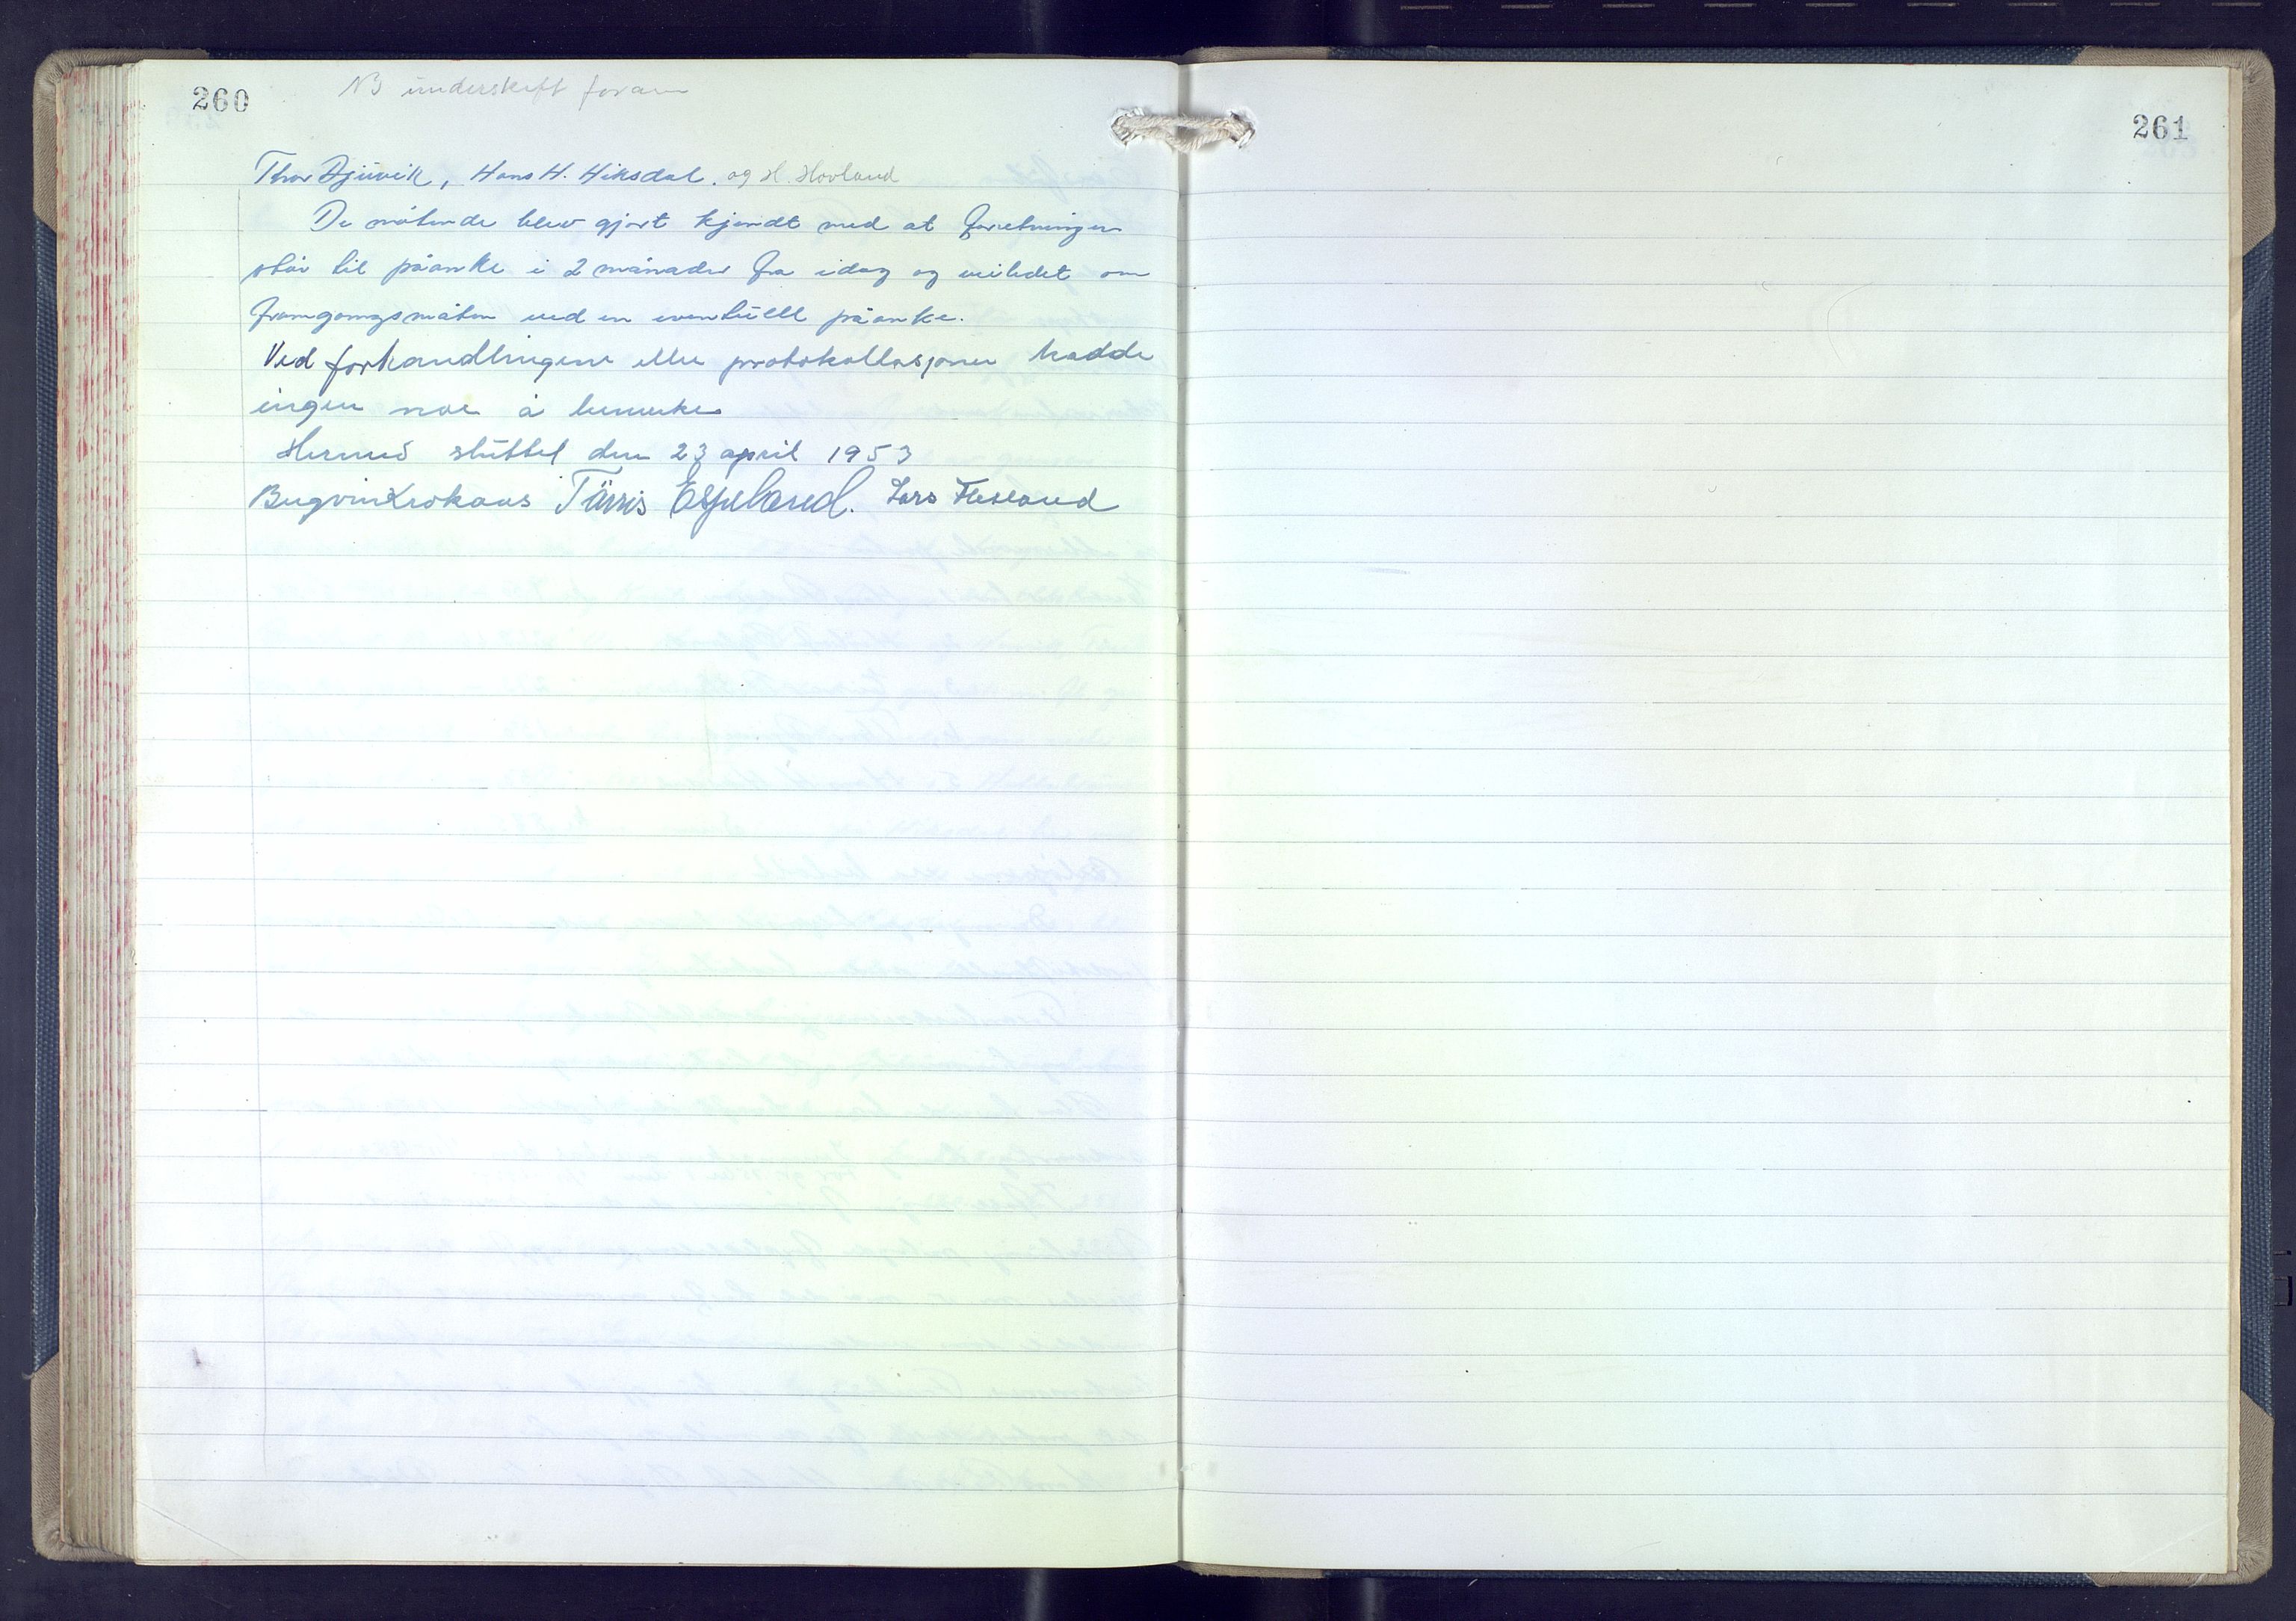 260
NB underskrift foran
Thor Djuvik, Hans H. Hiksdal. og H. Hovland
De møtende blev gjort kjendt med at forretningen
står til påanke i 2 månader fra idag og veiledet om
framgangsmåten ved en eventuell påanke.
Ved forhandlingene eller protokollasjonen hadde
ingen noe å bemerke
Hermed sluttet den 23 april 1953
Brigvin Krokaas Tårris Espeland. Lars Flesland
261